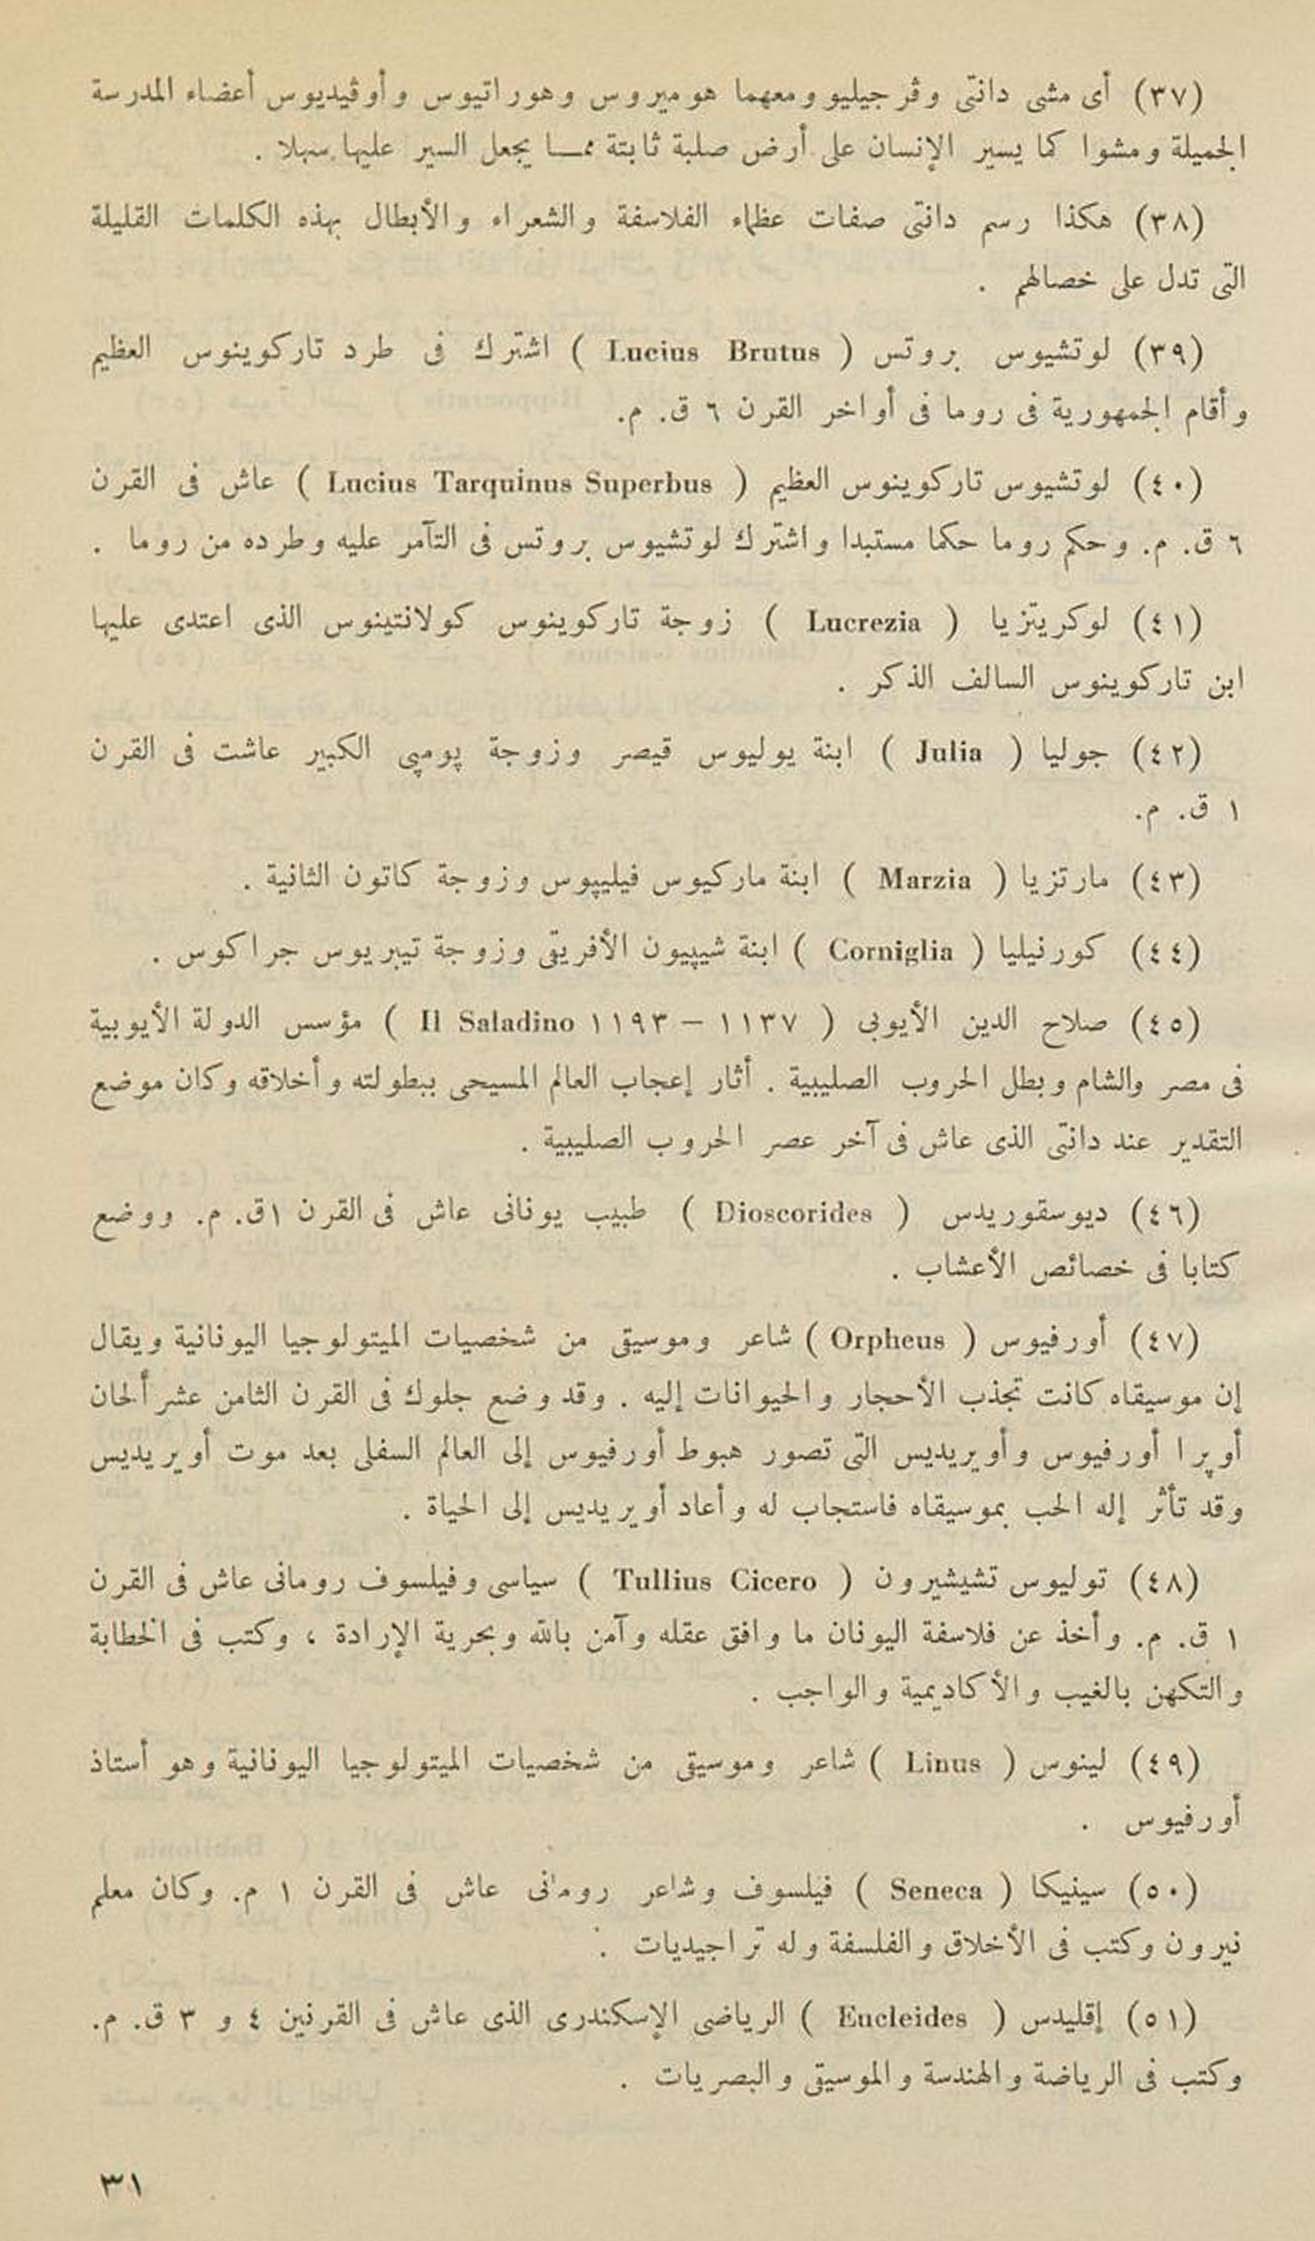 (٣٧) أى مشى دانتى وڤرجيليو ومعهما هوميروس وهوراتيوس وأوڤيديوس أعضاء المدرسة
الجميلة ومشوا كما يسير الإنسان على أرض صلبة ثابتة مما يجعل السير عليها سهلا .
(٣٨) هكذا رسم دانتى صفات عظماء الفلاسفة والشعراء والأبطال بهذه الكلمات القليلة
التى تدل على خصالهم .
(٣٩) لوتشيوس بروتس ( Lucius Brutus ) اشترك فى طرد تاركوينوس العظيم
وأقام الجمهورية فى روما فى أواخر القرن ٦ ق. م.
(٤٠) لوتشيوس تاركوينوس العظيم ( Lucius Tarquinus Superbus ) عاش فى القرن
٦ ق. م. وحكم روما حكما مستبدا واشترك لوتشيوس بروتس فى التآمر عليه وطرده من روما .
(٤١) لوكريتزيا ( Lucrezia ) زوجة تاركوينوس كولانتينوس الذى اعتدى عليها
ابن تاركوينوس السالف الذكر .
(٤٢) جوليا ( Julia ) ابنة يوليوس قيصر وزوجة پومپى الكبير عاشت فى القرن
١ ق. م.
(٤٣) مارتزيا ( Marzia ) ابنة ماركيوس فيليپوس وزوجة كاتون الثانية .
(٤٤) كورنيليا ( Corniglia ) ابنة شيپيون الأفريقى وزوجة تيبريوس جراكوس .
(٤٥) صلاح الدين الأيوبى ( ١١٣٧ – ١١٩٣ Il Saladino ) مؤسس الدولة الأيوبية
فى مصر والشام وبطل الحروب الصليبية . أثار إعجاب العالم المسيحى ببطولته وأخلاقه وكان موضع
التقدير عند دانتى الذى عاش فى آخر عصر الحروب الصليبية .
(٤٦) ديوسقوريدس ( Dioscorides ) طبيب يونانى عاش فى القرن ١ق. م. ووضع
كتابا فى خصائص الأعشاب .
(٤٧) أورفيوس ( Orpheus ) شاعر وموسيقى من شخصيات الميتولوجيا اليونانية ويقال
إن موسيقاه كانت تجذب الأحجار والحيوانات إليه . وقد وضع جلوك فى القرن الثامن عشر ألحان
أوپرا أورفيوس وأويريديس التى تصور هبوط أورفيوس إلى العالم السفلى بعد موت أويريديس
وقد تأثر إله الحب بموسيقاه فاستجاب له وأعاد أويريديس إلى الحياة .
(٤٨) توليوس تشيشيرون ( Tullius Cicero ) سياسى وفيلسوف رومانى عاش فى القرن
١ ق. م. وأخذ عن فلاسفة اليونان ما وافق عقله وآمن بالله وبحرية الإرادة ، وكتب فى الخطابة
والتكهن بالغيب والأكاديمية والواجب .
(٤٩) لينوس ( Linus ) شاعر وموسيقى من شخصيات الميتولوجيا اليونانية وهو أستاذ
أورفيوس .
(٥٠) سينيكا ( Seneca ) فيلسوف وشاعر رومانى عاش فى القرن ١ م. وكان معلم
نيرون وكتب فى الأخلاق والفلسفة وله تراجيديات .
(٥١) إقليدس ( Eucleides ) الرياضى الإسكندرى الذى عاش فى القرنين ٤ و ٣ ق. م.
وكتب فى الرياضة والهندسة والموسيقى والبصريات .
٣١